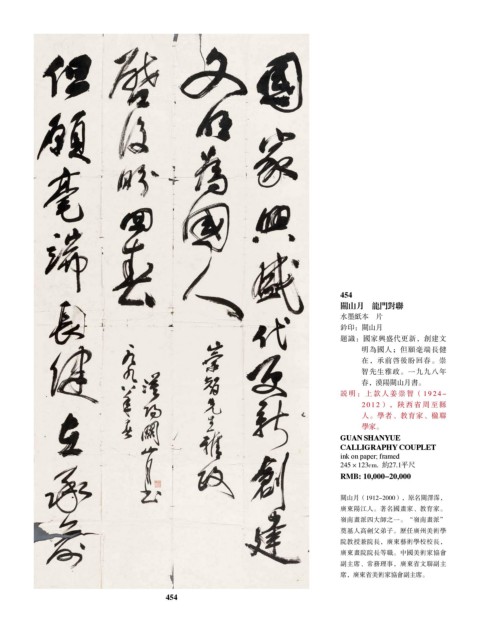 國家興盛代更新創建
文明為國人
崇智先生雅政
但願毫端長健在承前
啓後盼回春
一九九八年春
漠陽關山月書
454
454
關山月　龍門對聯
水墨紙本　片
鈐印：關山月
題識：國家興盛代更新，創建文
明為國人；但願毫端長健
在，承前啓後盼回春。崇
智先生雅政。一九九八年
春，漠陽關山月書。
說明：上款人姜崇智（1924-
2012），陝西省周至縣
人。學者、教育家、楹聯
學家。
GUAN SHANYUE
CALLIGRAPHY COUPLET
ink on paper; framed
245×123cm. 約27.1平尺
RMB: 10,000-20,000
關山月（1912-2000），原名關澤霈，
廣東陽江人。著名國畫家、教育家。
嶺南畫派四大師之一。“嶺南畫派”
奠基人高劍父弟子。歷任廣州美術學
院教授兼院長，廣東藝術學校校長，
廣東畫院院長等職。中國美術家協會
副主席、常務理事，廣東省文聯副主
席，廣東省美術家協會副主席。